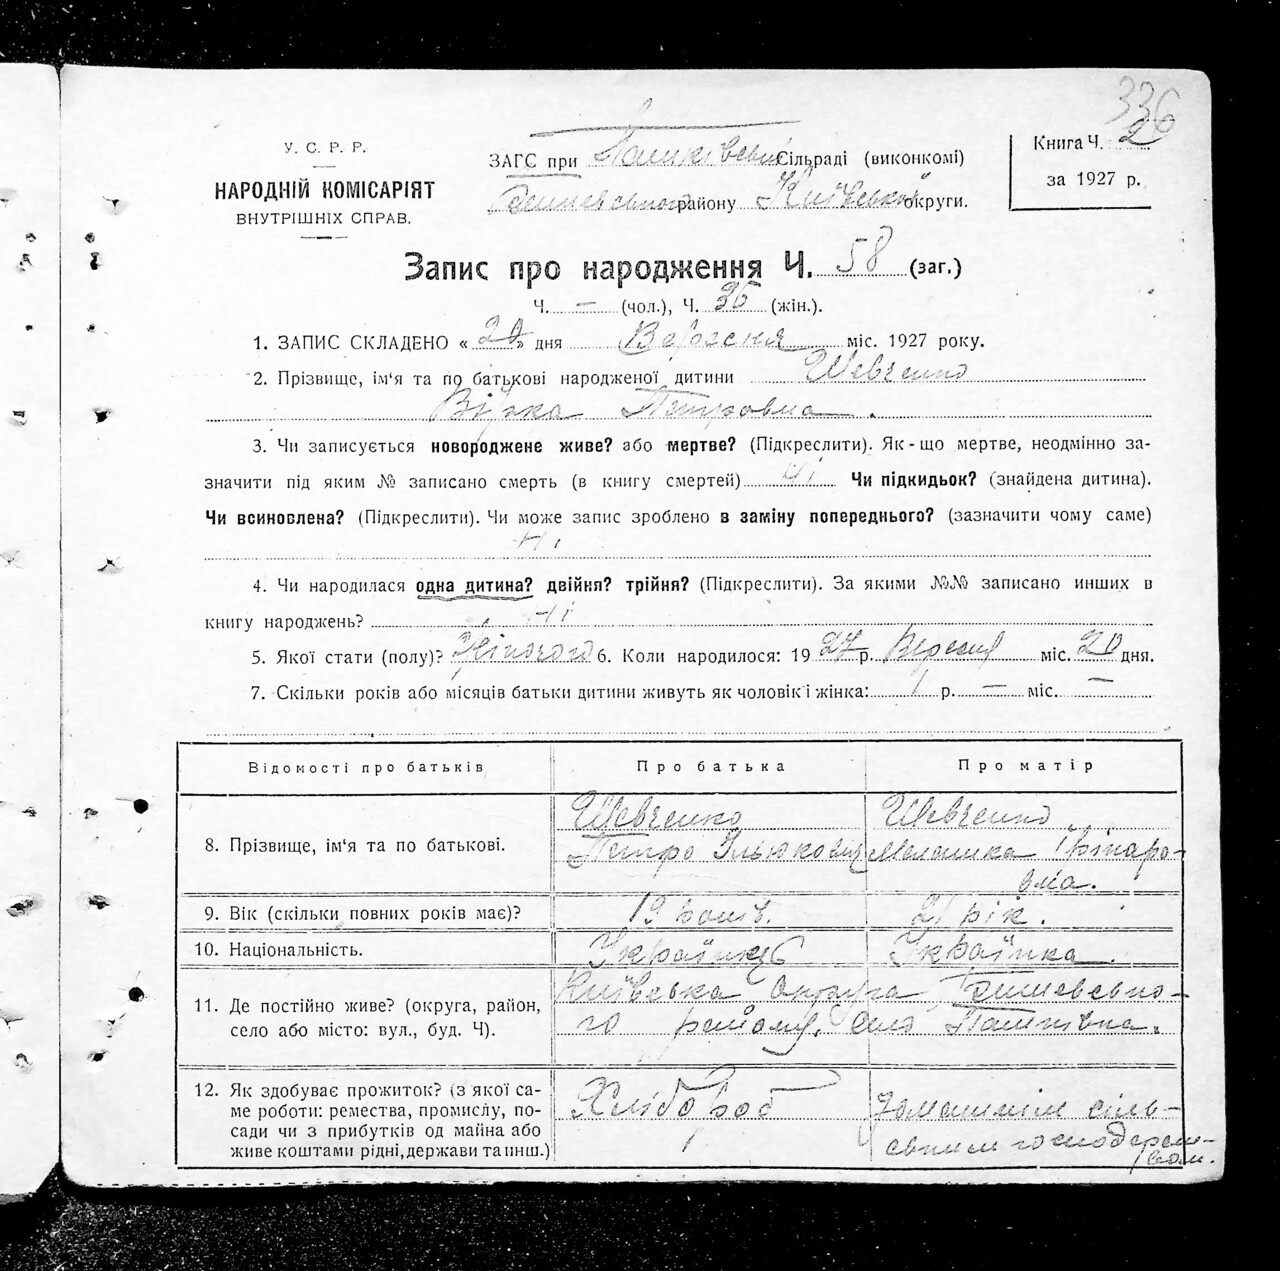 336
У. С. Р. Р.
НАРОДНІЙ КОМІСАРІЯТ
ВНУТРІШНІХ СПРАВ.
ЗАГС при Сільраді (виконкомі)
району Київської округи.
Книга Ч. 2
за 1927 р.
Запис про народження Ч. 58 (заг.)
Ч. — (чол.), Ч. 36 (жін.).
1. ЗАПИС СКЛАДЕНО « » дня Вересня міс. 1927 року.
2. Прізвище, ім'я та по батькові народженої дитини Шевченко
Вірка Петровна.
3. Чи записується новороджене живе? або мертве? (Підкреслити). Як-що мертве, неодмінно за-
значити під яким № записано смерть (в книгу смертей) Ні Чи підкидьок? (знайдена дитина).
Чи всиновлена? (Підкреслити). Чи може запис зроблено в заміну попереднього? (зазначити чому саме)
Ні
4. Чи народилася одна дитина? двійня? трійня? (Підкреслити). За якими №№ записано инших в
книгу народжень? Ні
5. Якої стати (полу)? Жіночого 6. Коли народилося: 1927 р. Вересня міс. 20 дня.
7. Скільки років або місяців батьки дитини живуть як чоловік і жінка: 1 р. — міс. —
Відомості про батьків Про батька Про матір
8. Прізвище, ім'я та по батькові.
Шевченко
Петро
Шевченко
Меланика
вна.
9. Вік (скільки повних років має)? 19 років. 21 рік.
10. Національність. Українець Українка.
11. Де постійно живе? (округа, район,
село або місто: вул., буд. Ч).
Київська округа,
го району, село
12. Як здобуває прожиток? (з якої са-
ме роботи: ремества, промислу, по-
сади чи з прибутків од майна або
живе коштами рідні, держави та инш.)
Хлібороб
домашнім сіль-
ським господарст-
вом.